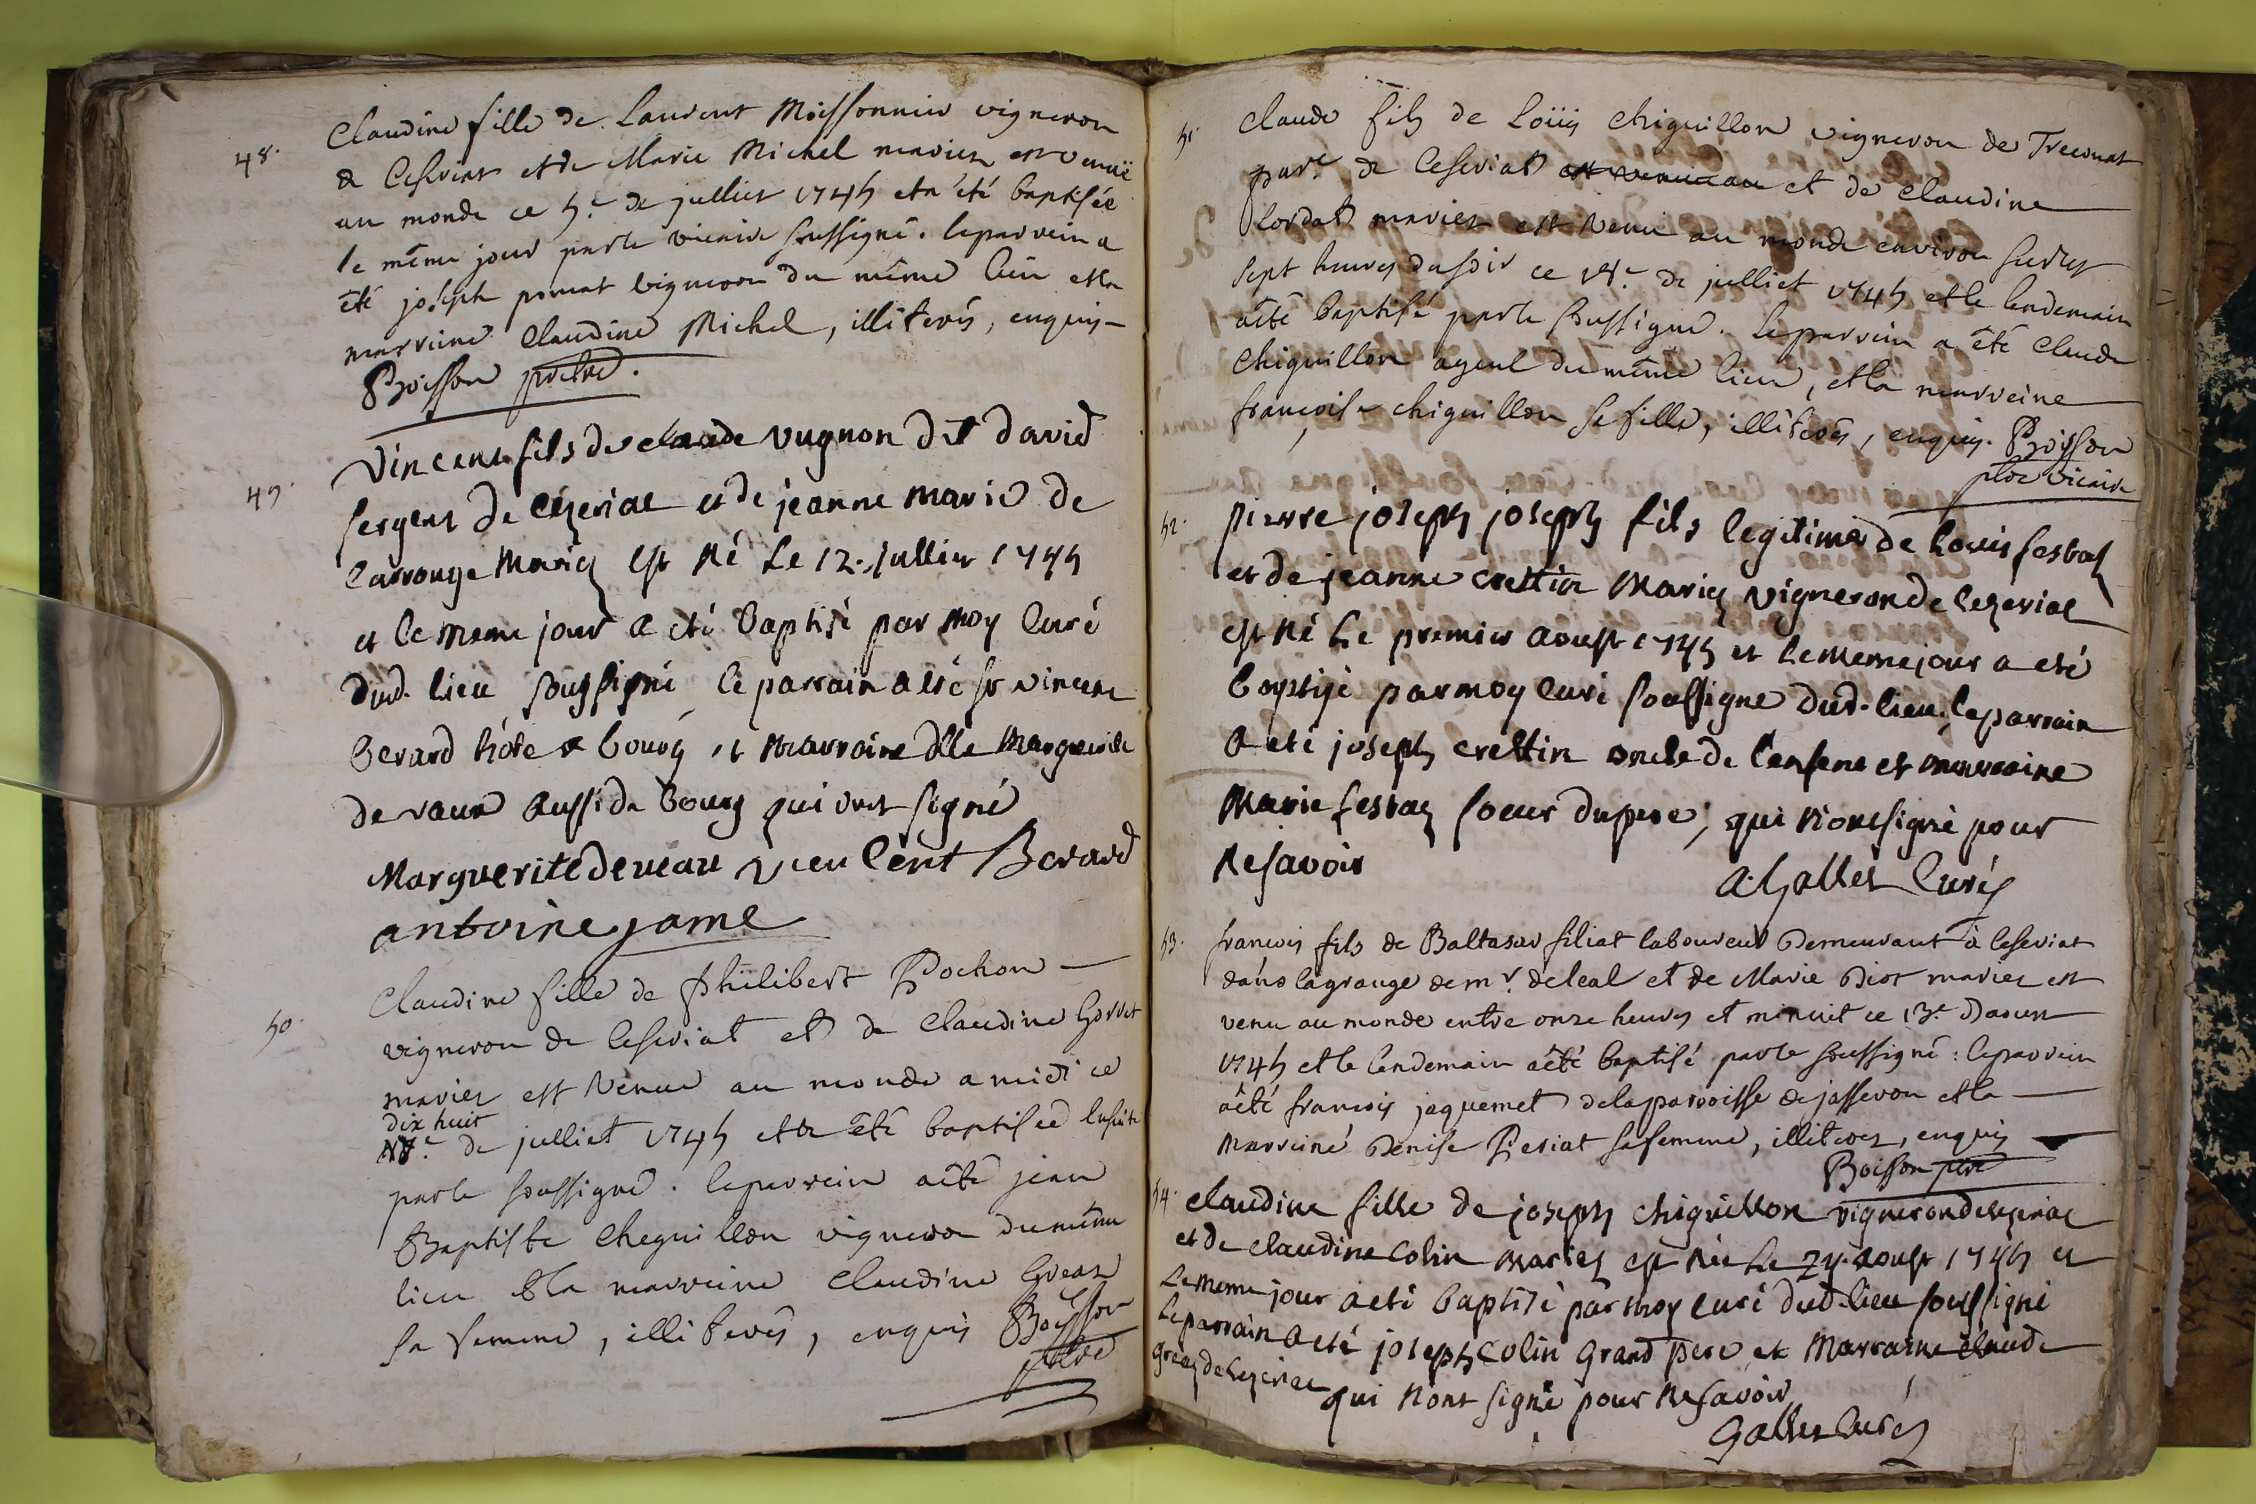 48.
Claudine fille de Laurent Moissonnier vigneron
de Ceseriat et de Marie Michel mariez est venuë
au monde ce 5.e de julliet 1745 et a été baptisée
le même jour par le vicaire soussigné. le parrein a
été joseph poncet vigneron du même lieu et la
marreine Claudine Michel, illiterés, enquis
Boisson prêtre.
49.
Vincent fils de claude vugnon dit david
sergent de Cezeriat et de jeanne marie de
carrouge Mariez est Né Le 12. Juillier 1745
et le meme jour a eté baptisé par moy Curé
dud. lieu soussigné le parrain a eté sr vincent
berard hôte a bourg et marraine dlle Marguerite
de vaux aussi de bourg qui ont signé
Marguerite deveau vieu Cent Berard
antoine jame
50.
Claudine fille de philibert Pochon
vigneron de Ceseriat et de Claudine Gorret
mariez est venue au monde a midi ce
dix huit
18.e de julliet 1745 et a été baptisée ensuite
par le soussigné. le parrein a été jean
Baptiste Cheguillon vigneron du même
lieu et la marreine Claudine Greaz
sa femme, illiterés, enquis Boisson
prêtre
51.
Claude fils de Loüis Chiguillon vigneron de Treconat
par.e de Ceseriat est venu au et de Claudine
Cordat mariez est venu au monde environ sur les
sept heures du soir ce 18.e de julliet 1745 et le lendemain
a été baptisé par le soussigné. le parrein a été Claude
Chiguillon ayeul du même lieu, et la marreine
françoise chiguillon sa fille, illiterés, enquis. Boisson
ptre vicaire
52.
pierre joseph joseph fils legitime de Louis festaz
et de jeanne crettin Mariez vigneron de Cezeriat
est Né Le premier aoust 1745 et le meme jour a eté
baptisé par moy Curé soussigne dud. lieu, le parrain
a eté joseph crettin oncle de l'enfent et marraine
Marie festaz soeur du pere, qui n'ont signé pour
Ne savoir
A. Gallet Curé
53.
francois fils de Baltasar filiat laboureur demeurant à Ceseriat
dans la grange de mr. deleal et de Marie Diot mariez est
venu au monde entre onze heures et minuit ce 13.e D'aoust
1745 et le lendemain a été baptisé par le soussigné: le parrein
a été francois jaquemet de la parroisse de jasseron et la
marreine Denise Periat sa femme, illiterez, enquis
Boisson ptre
54.
claudine fille de joseph chiguillon vigneron de Cezeriat
et de claudine Colin mariez est née Le 24. aoust 1745 et
Le meme jour a eté baptisé par moy curé dud. lieu soussigné
le parrain a eté joseph Colin grand pere et Marraine claude
greaz de Cezeriat qui n'ont signé pour ne savoir
Gallet Curé